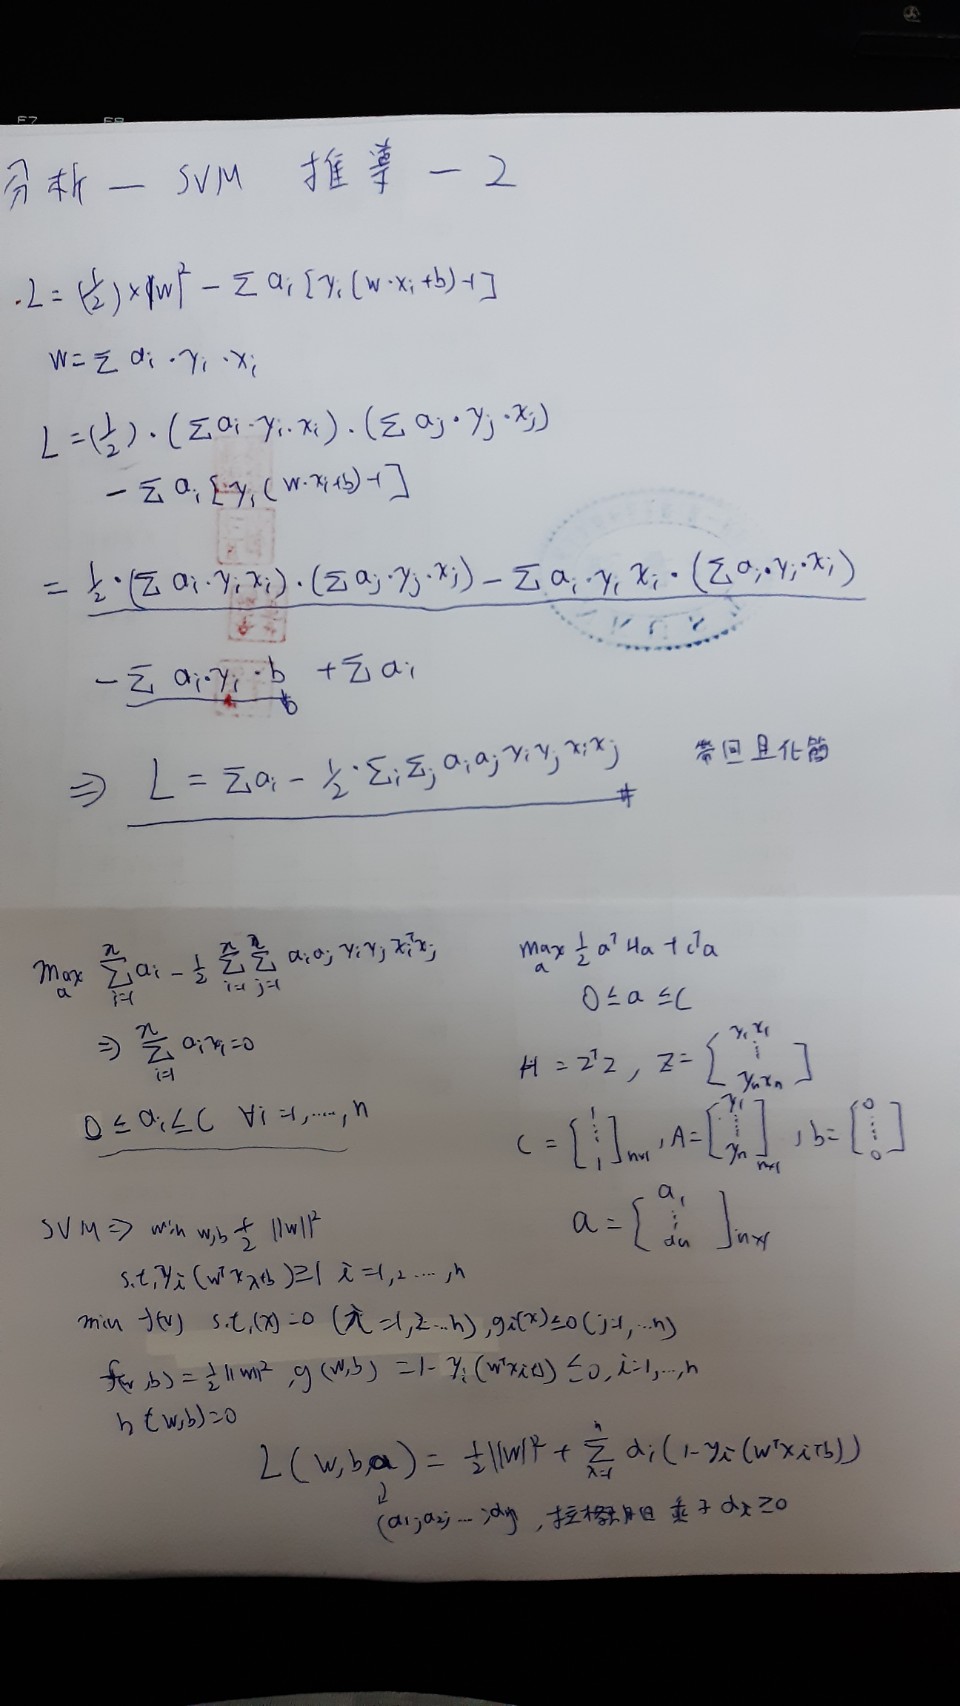 F7 F8
分析 — SVM 推導 - 2
L = (1/2) × |w|² - Σ ai [yi (w·xi+b)-1]
w = Σ ai · yi · xi
L = (1/2) · (Σ ai · yi · xi) · (Σ aj · yj · xj)
- Σ ai [yi (w·xi+b)-1]
= 1/2 · (Σ ai · yi xi) · (Σ aj · yj · xj) - Σ ai · yi xi · (Σ ai · yi · xi)
- Σ ai · yi · b + Σ ai
⇒ L = Σ ai - 1/2 · Σi Σj ai aj yi yj xi xj # 帶回且化簡
max a Σ i=1 n ai - 1/2 Σ i=1 n Σ j=1 n ai aj yi yj xiᵀxj
⇒ Σ i=1 n ai yi = 0
0 ≤ ai ≤ C ∀i = 1, ..., n
max a 1/2 aᵀHa + cᵀa
0 ≤ a ≤ C
H = zᵀz, z = [y1 x1 ⋮ yn xn]
C = [1 ⋮ 1] n×1, A = [y1 ⋮ yn] n×1, b = [0 ⋮ 0]
a = [a1 ⋮ an] n×1
SVM ⇒ min w,b 1/2 ||w||²
s.t, yi (wᵀxi+b) ≥ 1 i = 1,2 ..., n
min f(x) s.t, (x) = 0 (i = 1,2...n), gi(x) ≤ 0 (j=1, ...n)
f(w,b) = 1/2 ||w||², g(w,b) = 1 - yi (wᵀxi+b) ≤ 0, i = 1, ..., n
h(w,b) = 0
L(w,b,a) = 1/2 ||w||² + Σ i=1 n ai (1 - yi (wᵀxi+b))
(a1; a2; ... ;an), 拉格朗日乘子 ai ≥ 0